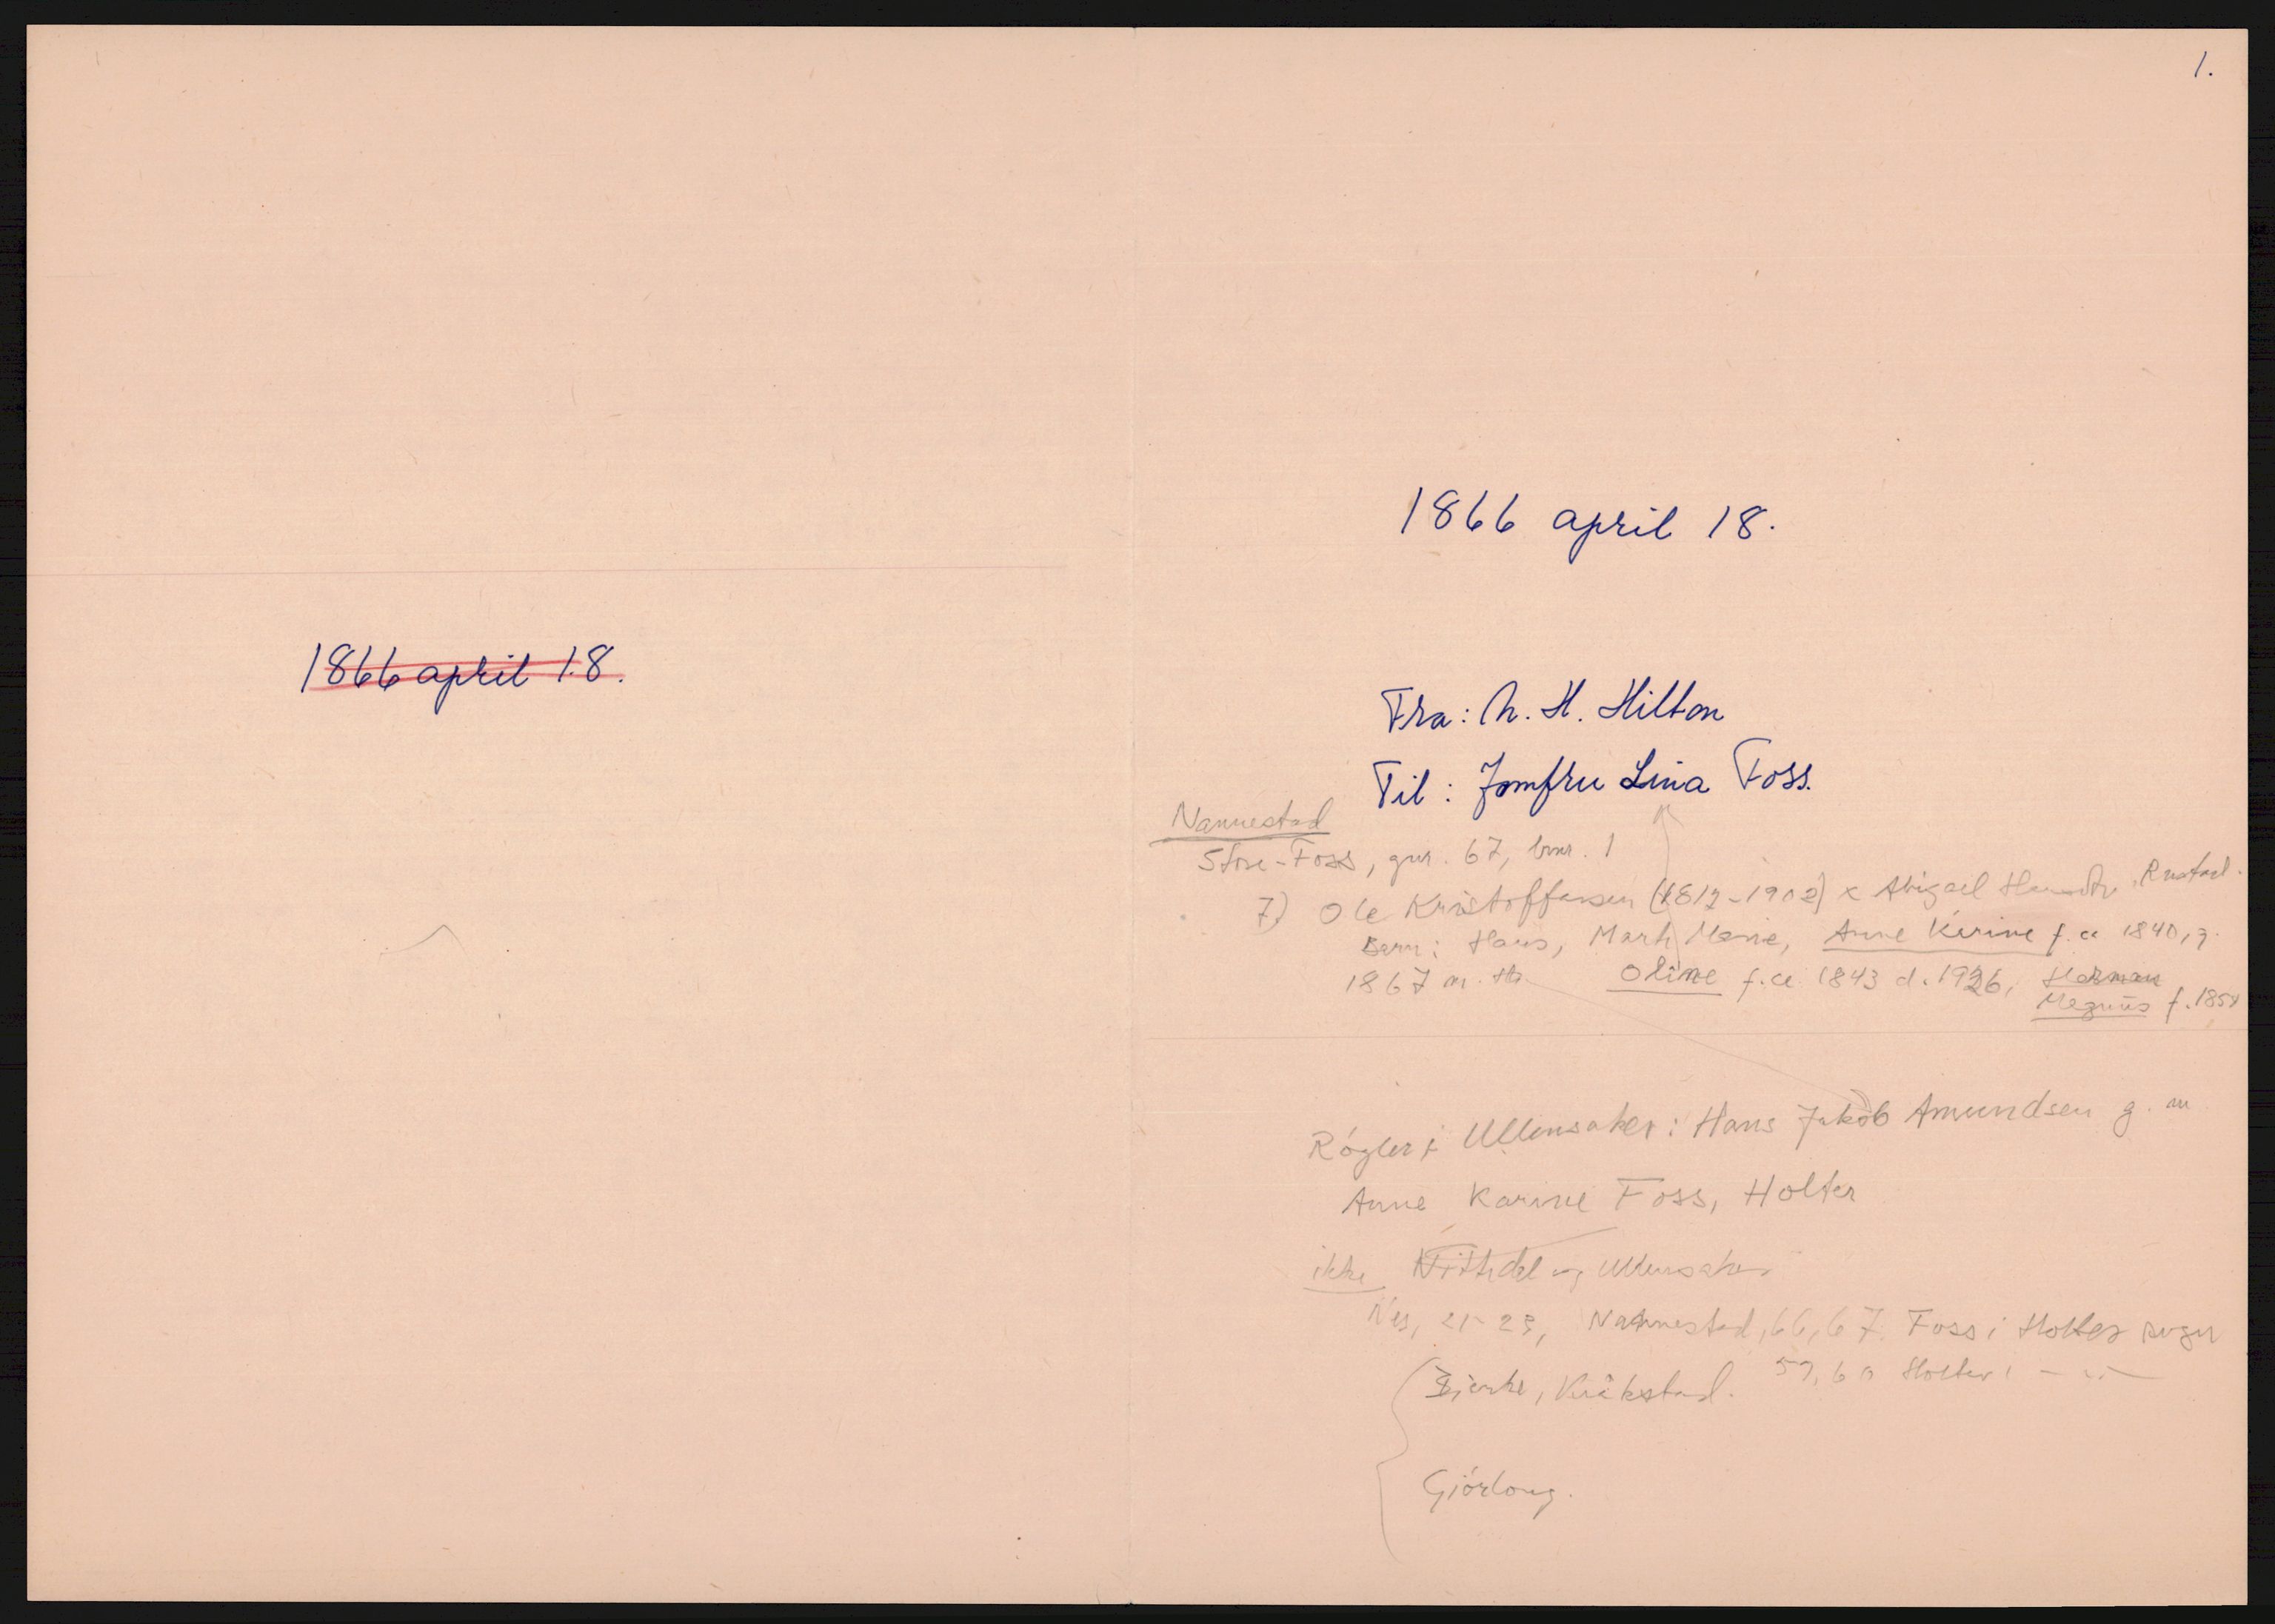 1866 april 18.
1.
1866 april 18.
Fra: N. H. Hilton
Til: Jomfru Lina Foss.
Nannestad
Store-Foss, gnr. 67, bnr. 1
7) Ole Kristoffersen (1812-1902) x Abigael Hansdtr.
Barn: Hans, Marthe Marie, Anne Karine f. ca 1840, g.
1867 m. Oline f. ca 1843 d. 1926, Herman
Magnus f. 1854
Rögler i Ullensaker: Hans Jakob Amundsen g. m
Anne Karine Foss, Holter
ikke Nittedal og Ullensaker
Nes, 21-23, Nannestad, 66, 67. Foss i Holter sogn
Bjerke, Kråkstad. 59, 60 Holter i - " -
Gjörlaug.